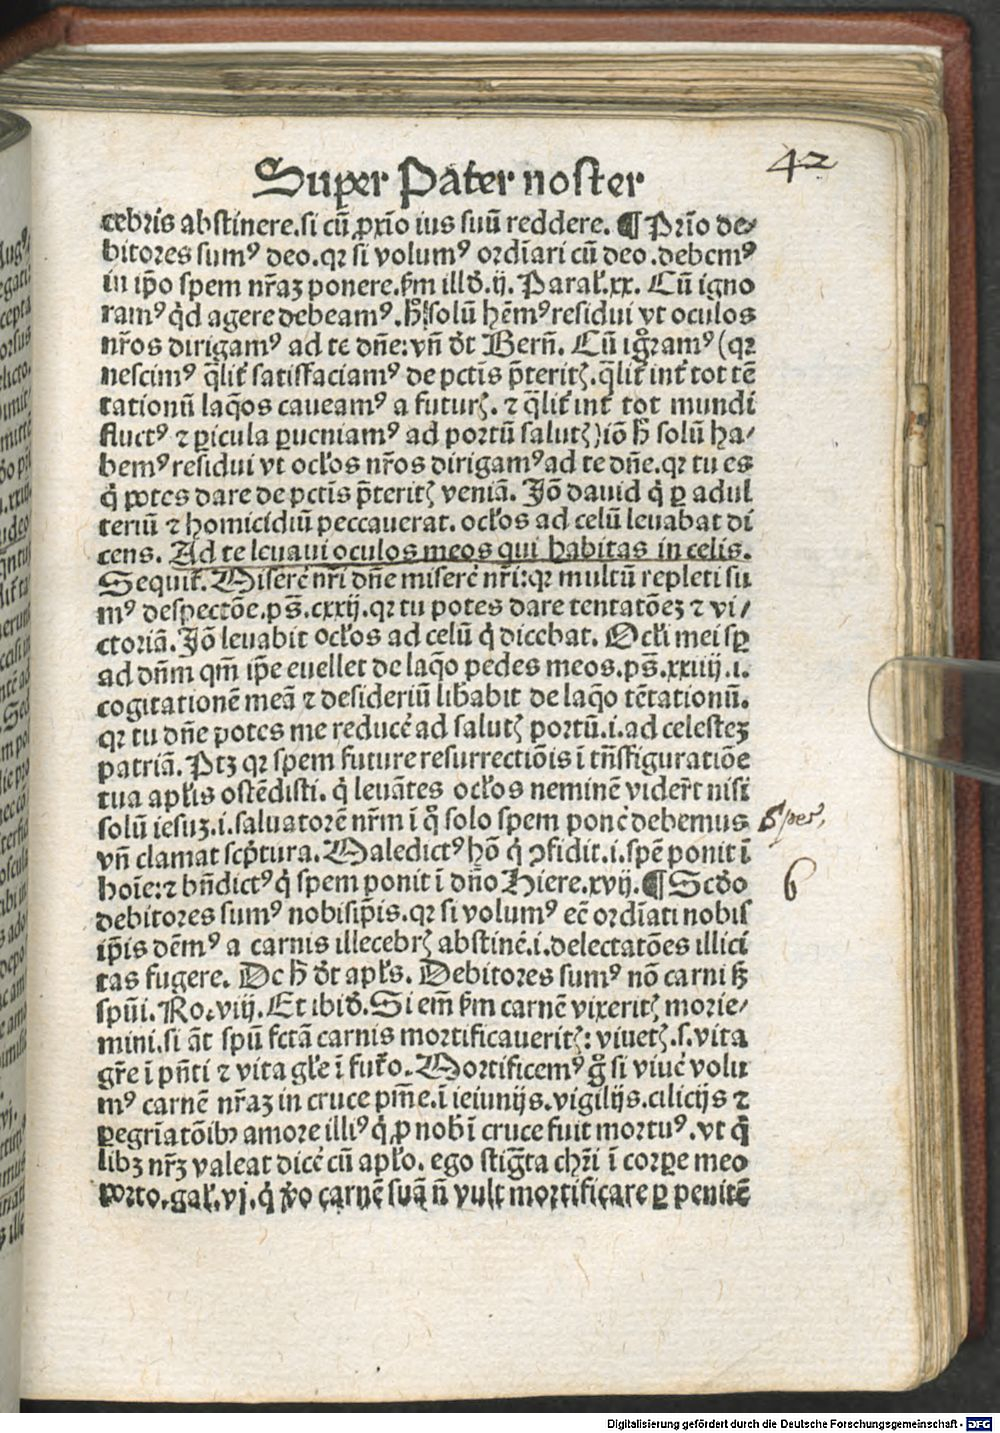 Super Pater noster
42
cebris abstinere.si cū ꝓxīo ius suū reddere. ¶ Prīo de⸗
bitores sumꝰ deo.qꝛ si volumꝰ ordīari cū deo.debemꝰ
in ip̄o spem nr̄aꝫ ponere.ẜm illđ.ij. Parał.xx. Cū igno
ramꝰ q̇d agere debeamꝰ.h̄ solū hēmꝰ residui vt oculos
nr̄os dirigamꝰ ad te dn̄e:vn̄ dt̄ Bern̄. Cū igr̄amꝰ (qꝛ
nescimꝰ q̄lit̄ satisfaciamꝰ de pct̄is p̄teritꝭ.q̄lit̄ int̄ tot tē
tationū laq̇os caueamꝰ a futurꝭ. ⁊ q̄lit̄ int̄ tot mundi
fluctꝰ ⁊ ꝑicula ꝑueniamꝰ ad portū salutꝭ)iō h̄ solū ha⸗
bemꝰ residui vt ocłos nr̄os dirigamꝰ ad te dn̄e.qꝛ tu es
q̇ potes dare de pct̄is p̄teritꝭ veniā. Iō dauid q̇ ꝑ adul
teriū ⁊ homicidiū peccauerat. ocłos ad celū leuabat di
cens. Ad te leuaui oculos meos qui habitas in celis.
Sequit̄. Miserē nr̄i dn̄e miserē nr̄i:qꝛ multū repleti su
mꝰ despectōe.ps̄.cxxij.qꝛ tu potes dare tentatōeꝫ ⁊ vi⸗
ctoriā. Iō leuabit ocłos ad celū q̇ dicebat. Ocłi mei sꝑ
ad dn̄m qm̄ ip̄e euellet de laq̇o pedes meos.ps̄.xxiiij.i.
cogitationē meā ⁊ desideriū lib̄abit de laq̇o tētationū.
qꝛ tu dn̄e potes me reducē ad salutꝭ portū.i.ad celesteꝫ
patriā. Ptꝫ qꝛ spem future resurrectiōis ī tn̄sfiguratiōe
tua apłis ostēdisti. q̇ leuātes ocłos neminē vidert̄ nisi
solū iesuꝫ.i.saluatorē nr̄m ī q̊ solo spem ponē debemus
Spes,
vn̄ clamat scp̄tura. Maledictꝰ hō q̇ ꝯfidit.i.spē ponit ī
hoīe:⁊ bn̄dictꝰ q̇ spem ponit ī dn̄o Hiere.xvij. ¶ Scđo
6
debitores sumꝰ nobisip̄is.qꝛ si volumꝰ ec̄ ordīati nobis
ip̄is dēmꝰ a carnis illecebrꝭ abstinē.i.delectatōes illici
tas fugere. De h̄ dt̄ apłs. Debitores sumꝰ nō carni sꝫ
spūi. Ro.viij. Et ibiđ. Si em̄ ẜm carnē vixeritꝭ morie⸗
mini.si āt spū fctā carnis mortificaueritꝭ: viuetꝭ.s.vita
gr̄e ī pn̄ti ⁊ vita głe ī fut̄o. Mortificemꝰ g̊ si viuē volu
mꝰ carnē nr̄aꝫ in cruce pm̄e.ī ieiunijs.vigilijs.cilicijs ⁊
ꝑegrīatōibꝫ amore illiꝰ q̇ ꝓ nobī cruce fuit mortuꝰ. vt q̇
libꝫ nr̄ꝫ valeat dicē cū apło. ego stigm̄ta chr̄i ī corꝑe meo
porto.gał.vj. q̇ v̊o carnē suā n̄ vult mortificare ꝑ penitē
Digitalisierung gefördert durch die Deutsche Forschungsgemeinschaft - DFG